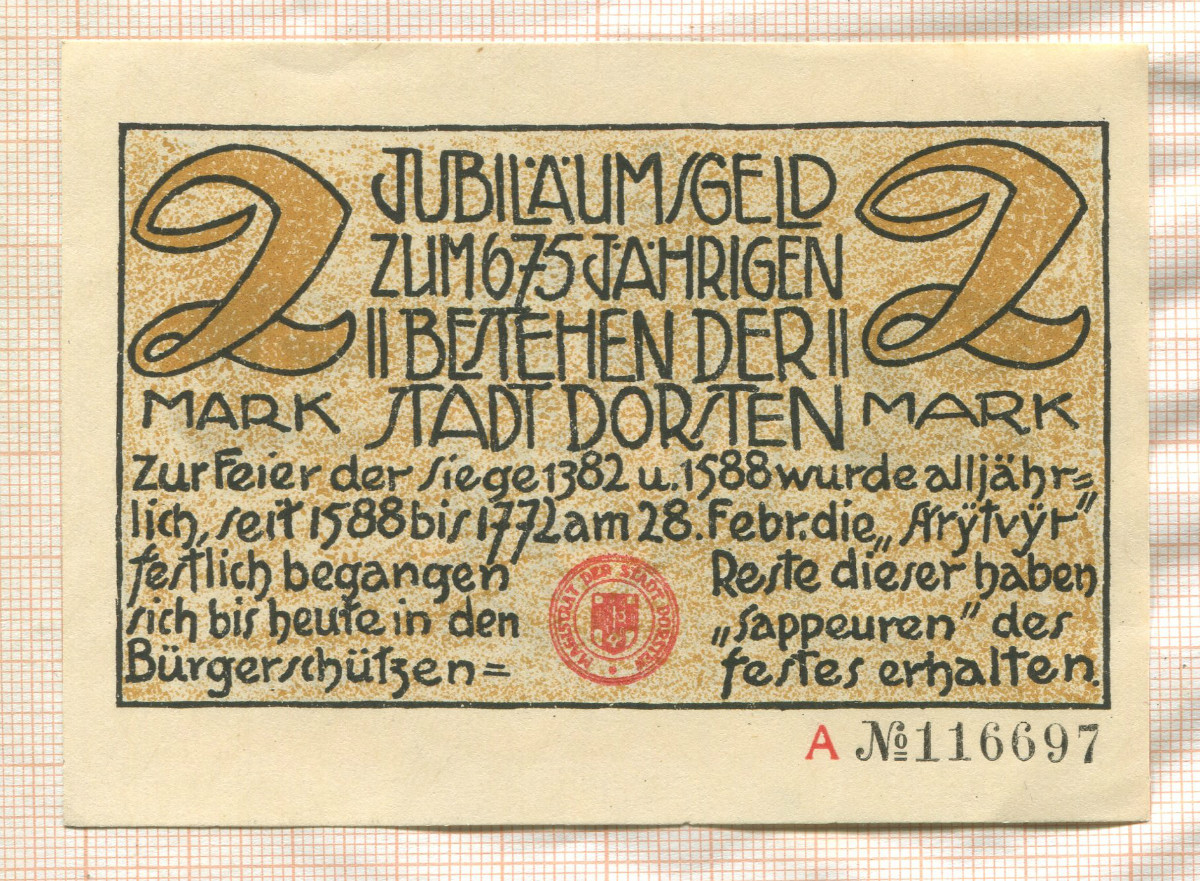 2 JUBILÄUMSGELD 2
ZUM 675 JÄHRIGEN
|| BESTEHEN DER ||
MARK STADT DORSTEN MARK
Zur Feier der Siege 1382 u. 1588 wurde alljähr=
lich, seit 1588 bis 1772 am 28. Febr. die „Strÿtvÿr"
festlich begangen Reste dieser haben
sich bis heute in den „Sappeuren" des
Bürgerschützen= festes erhalten.
MAGISTRAT DER STADT DORSTEN
A № 116697